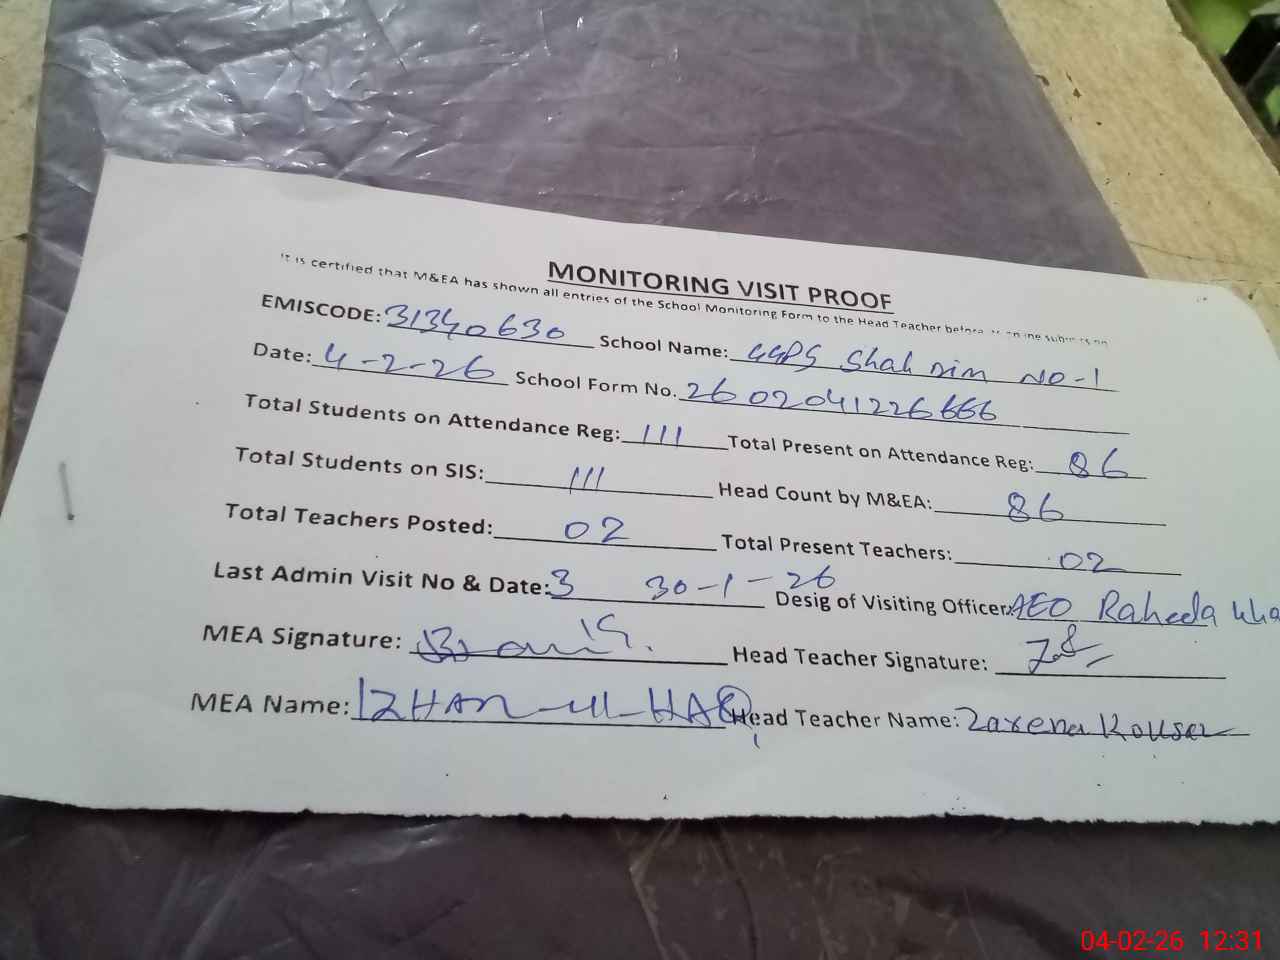 MONITORING VISIT PROOF
It is certified that M&EA has shown all entries of the School Monitoring Form to the Head Teacher before online submission
EMISCODE: 31340630 School Name: GGPS Shah nim NO-1
Date: 4-2-26 School Form No. 2602041226666
Total Students on Attendance Reg: 111 Total Present on Attendance Reg: 86
Total Students on SIS: 111 Head Count by M&EA: 86
Total Teachers Posted: 02 Total Present Teachers: 02
Last Admin Visit No & Date: 3 30-1-26 Desig of Visiting Officer: AEO Raheela
MEA Signature: Head Teacher Signature:
MEA Name: IZHAR-ul-HAQ Head Teacher Name: Zareena Kousar
04-02-26 12:31